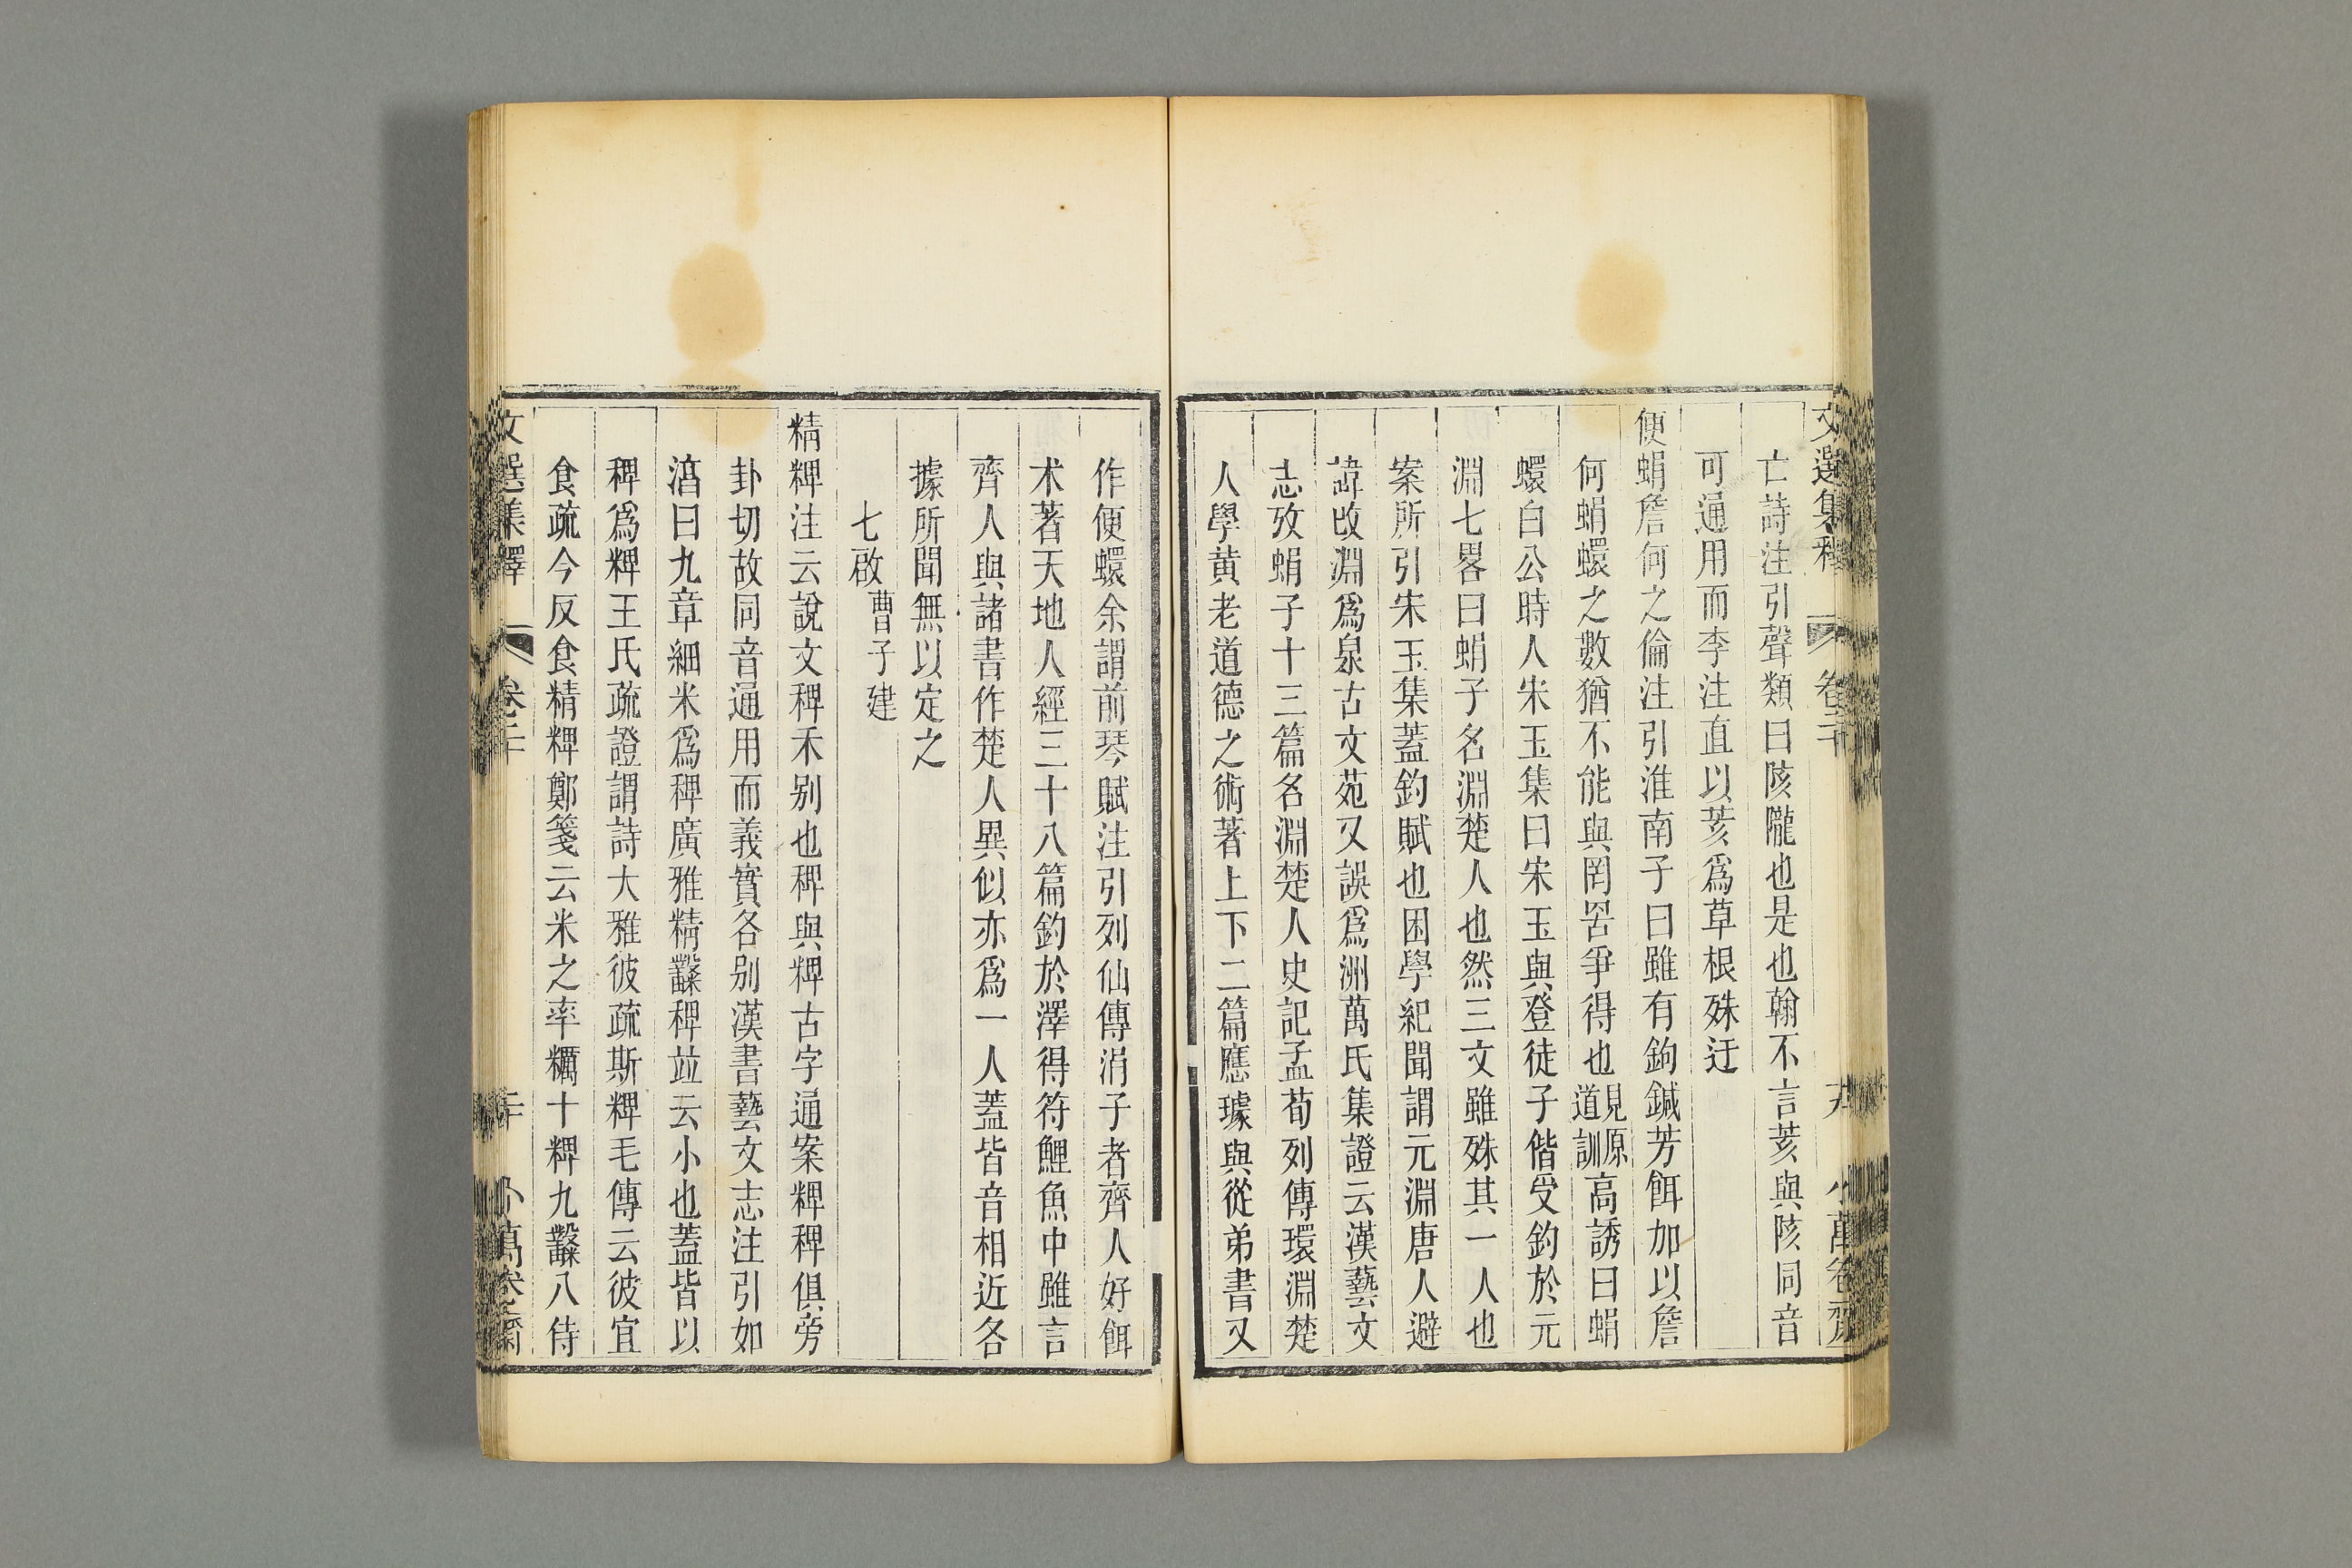 文選集釋 卷二十 十九 小萬卷齋
亡詩注引聲類曰陔隴也是也翰不言荄與陔同音
可通用而李注直以荄爲草根殊迂
便蜎詹何之倫注引淮南子曰雖有鉤鍼芳餌加以詹
何蜎蠉之數猶不能與罔罟爭得也見原道訓高誘曰蜎
蠉白公時人宋玉集曰宋玉與登徒子偕受釣於元
淵七畧曰蜎子名淵楚人也然三文雖殊其一人也
案所引宋玉集蓋釣賦也困學紀聞謂元淵唐人避
諱改淵爲泉古文苑又誤爲洲萬氏集證云漢藝文
志攷蜎子十三篇名淵楚人史記孟荀列傳環淵楚
人學黃老道德之術著上下二篇應璩與從弟書又
作便蠉余謂前琴賦注引列仙傳涓子者齊人好餌
术著天地人經三十八篇釣於澤得符鯉魚中雖言
齊人與諸書作楚人異似亦爲一人蓋皆音相近各
據所聞無以定之
七啟 曹子建
精粺注云說文稗禾别也稗與粺古字通案粺稗俱旁
卦切故同音通用而義實各别漢書藝文志注引如
湻曰九章細米爲稗廣雅精糳稗竝云小也蓋皆以
稗爲粺王氏疏證謂詩大雅彼疏斯粺毛傳云彼宜
食疏今反食精粺鄭箋云米之率糲十粺九糳八侍
文選集釋 卷二十 二十 小萬卷齋